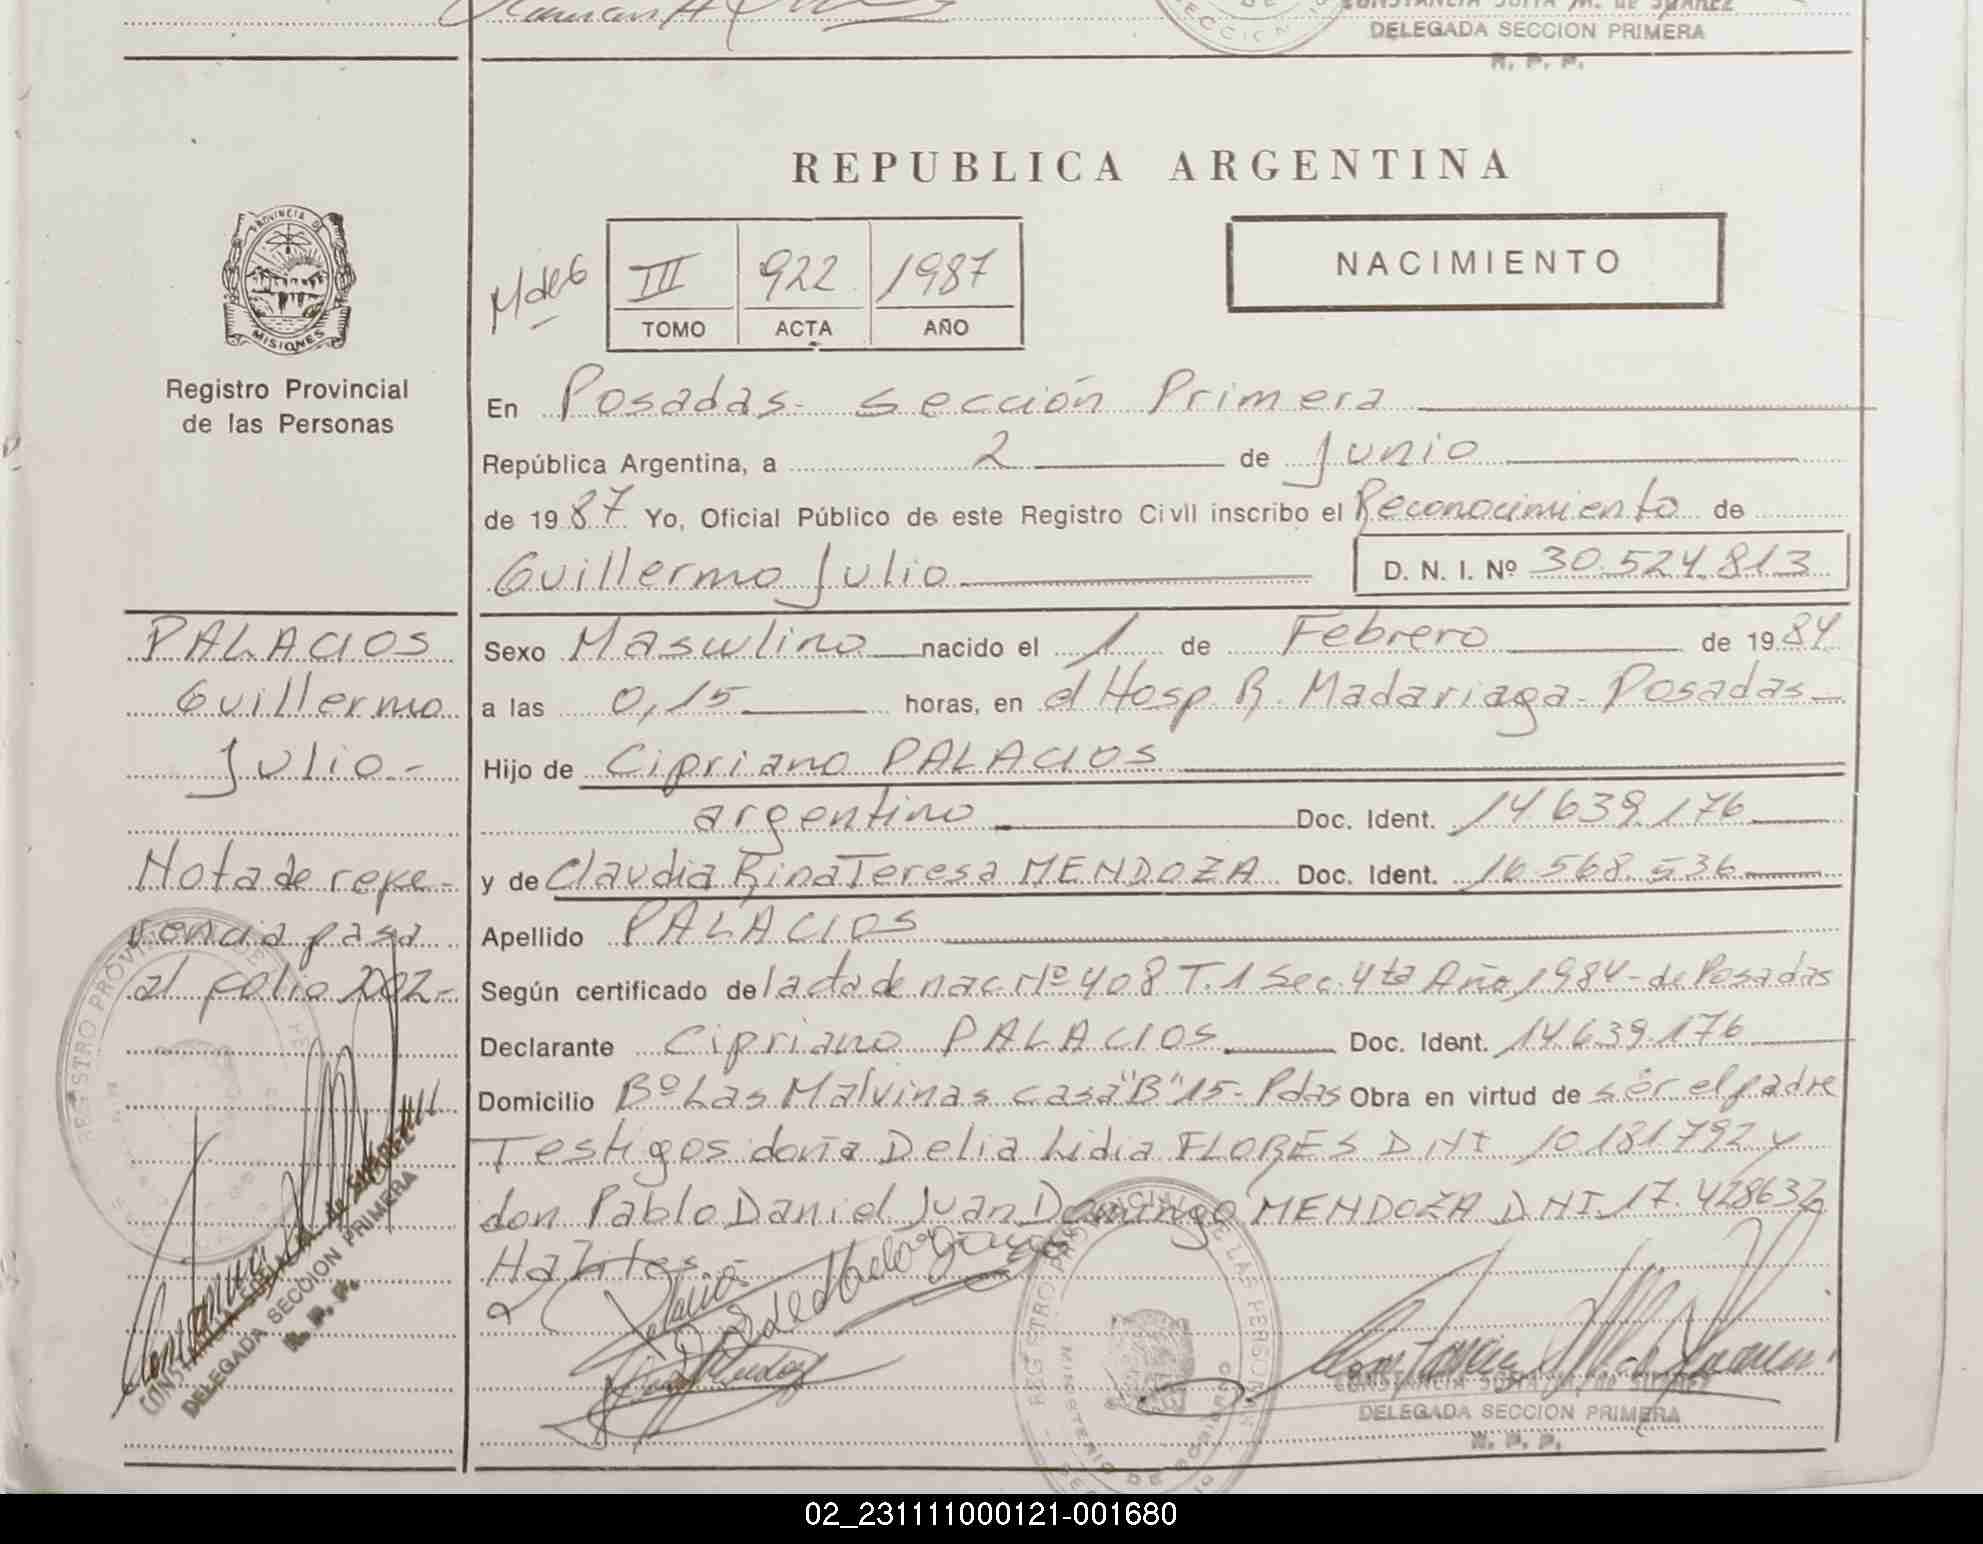 DELEGADA SECCION PRIMERA
R. P. P.
REPUBLICA ARGENTINA
PROVINCIA DE
MISIONES
Registro Provincial
de las Personas
III 922 1987
TOMO ACTA AÑO
NACIMIENTO
En Posadas - Sección Primera
República Argentina, a 2 de Junio
de 1987 Yo, Oficial Público de este Registro Civil inscribo el Reconocimiento de
Guillermo Julio D. N. I. Nº 30.524.813
PALACIOS
Guillermo
Julio.-
Nota de refe-
rencia pasa
al folio 2002-
Sexo Masculino nacido el 1 de Febrero de 1984
a las 0,15 horas, en el Hosp. R. Madariaga - Posadas -
Hijo de Cipriano PALACIOS
argentino Doc. Ident. 14.639.176
y de Claudia Rina Teresa MENDOZA Doc. Ident. 16.568.536
Apellido PALACIOS
Según certificado del acta de nac. Nº 408 T. 1 Sec. 4ta Año 1984 - de Posadas
Declarante Cipriano PALACIOS Doc. Ident. 14.639.176
Domicilio Bº Las Malvinas casa "B" 15 - Pdas Obra en virtud de ser el padre
Testigos doña Delia Lidia FLORES DNI 10.181.792 y
don Pablo Daniel Juan Domingo MENDOZA DNI 17.428632
DELEGADA SECCION PRIMERA
R. P. P.
CONSTANCIA SOFIA M. de SUAREZ
DELEGADA SECCION PRIMERA
R. P. P.
02_231111000121-001680